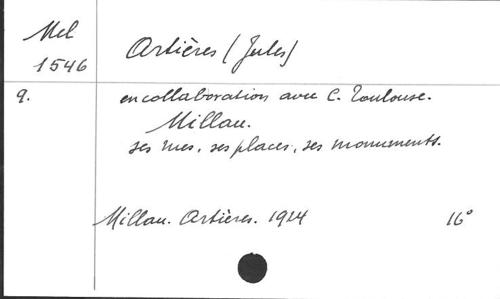 Mel
1546
Artières (Jules)
9.
en collaboration avec C. Toulouse.
Millau.
ses rues, ses places, ses monuments.
Millau. Artières. 1924
16°